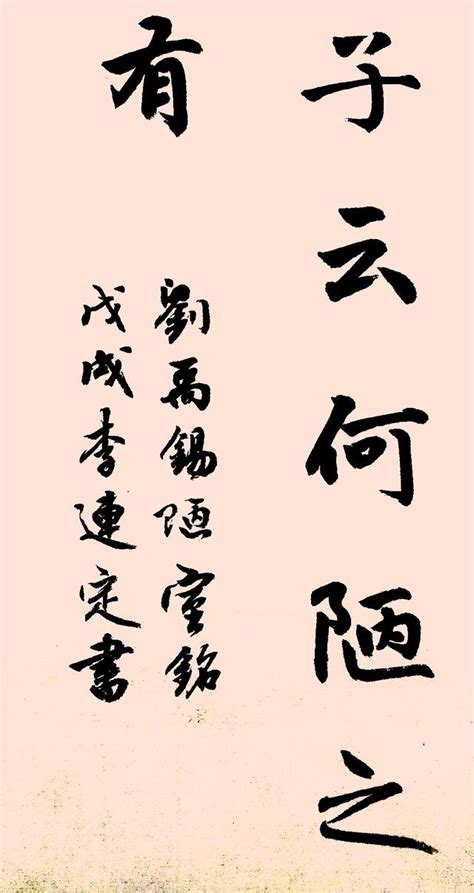 子云何陋之
有
劉禹錫陋室銘
戊戌李連定書